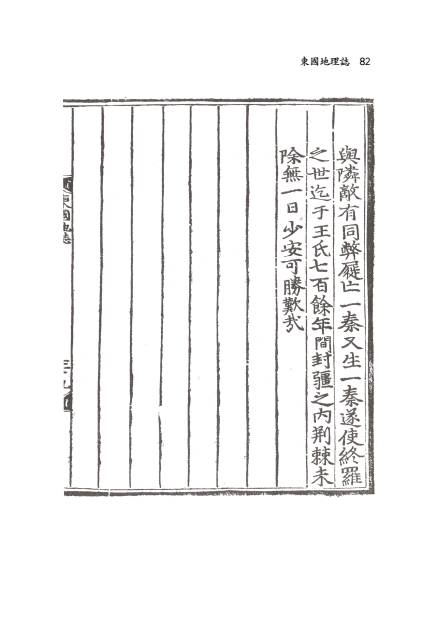 東國地理誌 82
與隣敵有同弊屣亡一秦又生一秦遂使終羅
之世迄于王氏七百餘年間封疆之內荆棘未
除無一日少安可勝歎哉